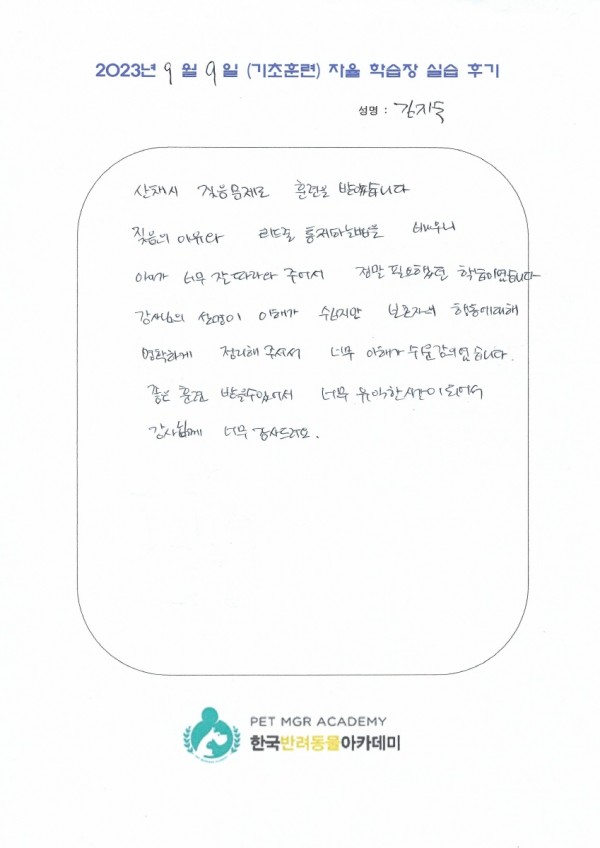 2023년 9월 9일 (기초훈련) 자율 학습장 실습 후기
성명 : 김지숙
산책시 짖음문제로 훈련을 받았습니다
짖음의 이유와 리드줄 통제하는법을 배우니
아이가 너무 잘 따라와 주어서 정말 필요했던 학습이였습니다
강사님의 설명이 이해가 쉽지만 보호자의 행동에대해
명확하게 정리해 주셔서 너무 이해가 쉬운강의였습니다.
좋은 훈련 받을수있어서 너무 유익한시간이 되어서
강사님께 너무 감사드려요.
PET MGR ACADEMY
한국반려동물아카데미